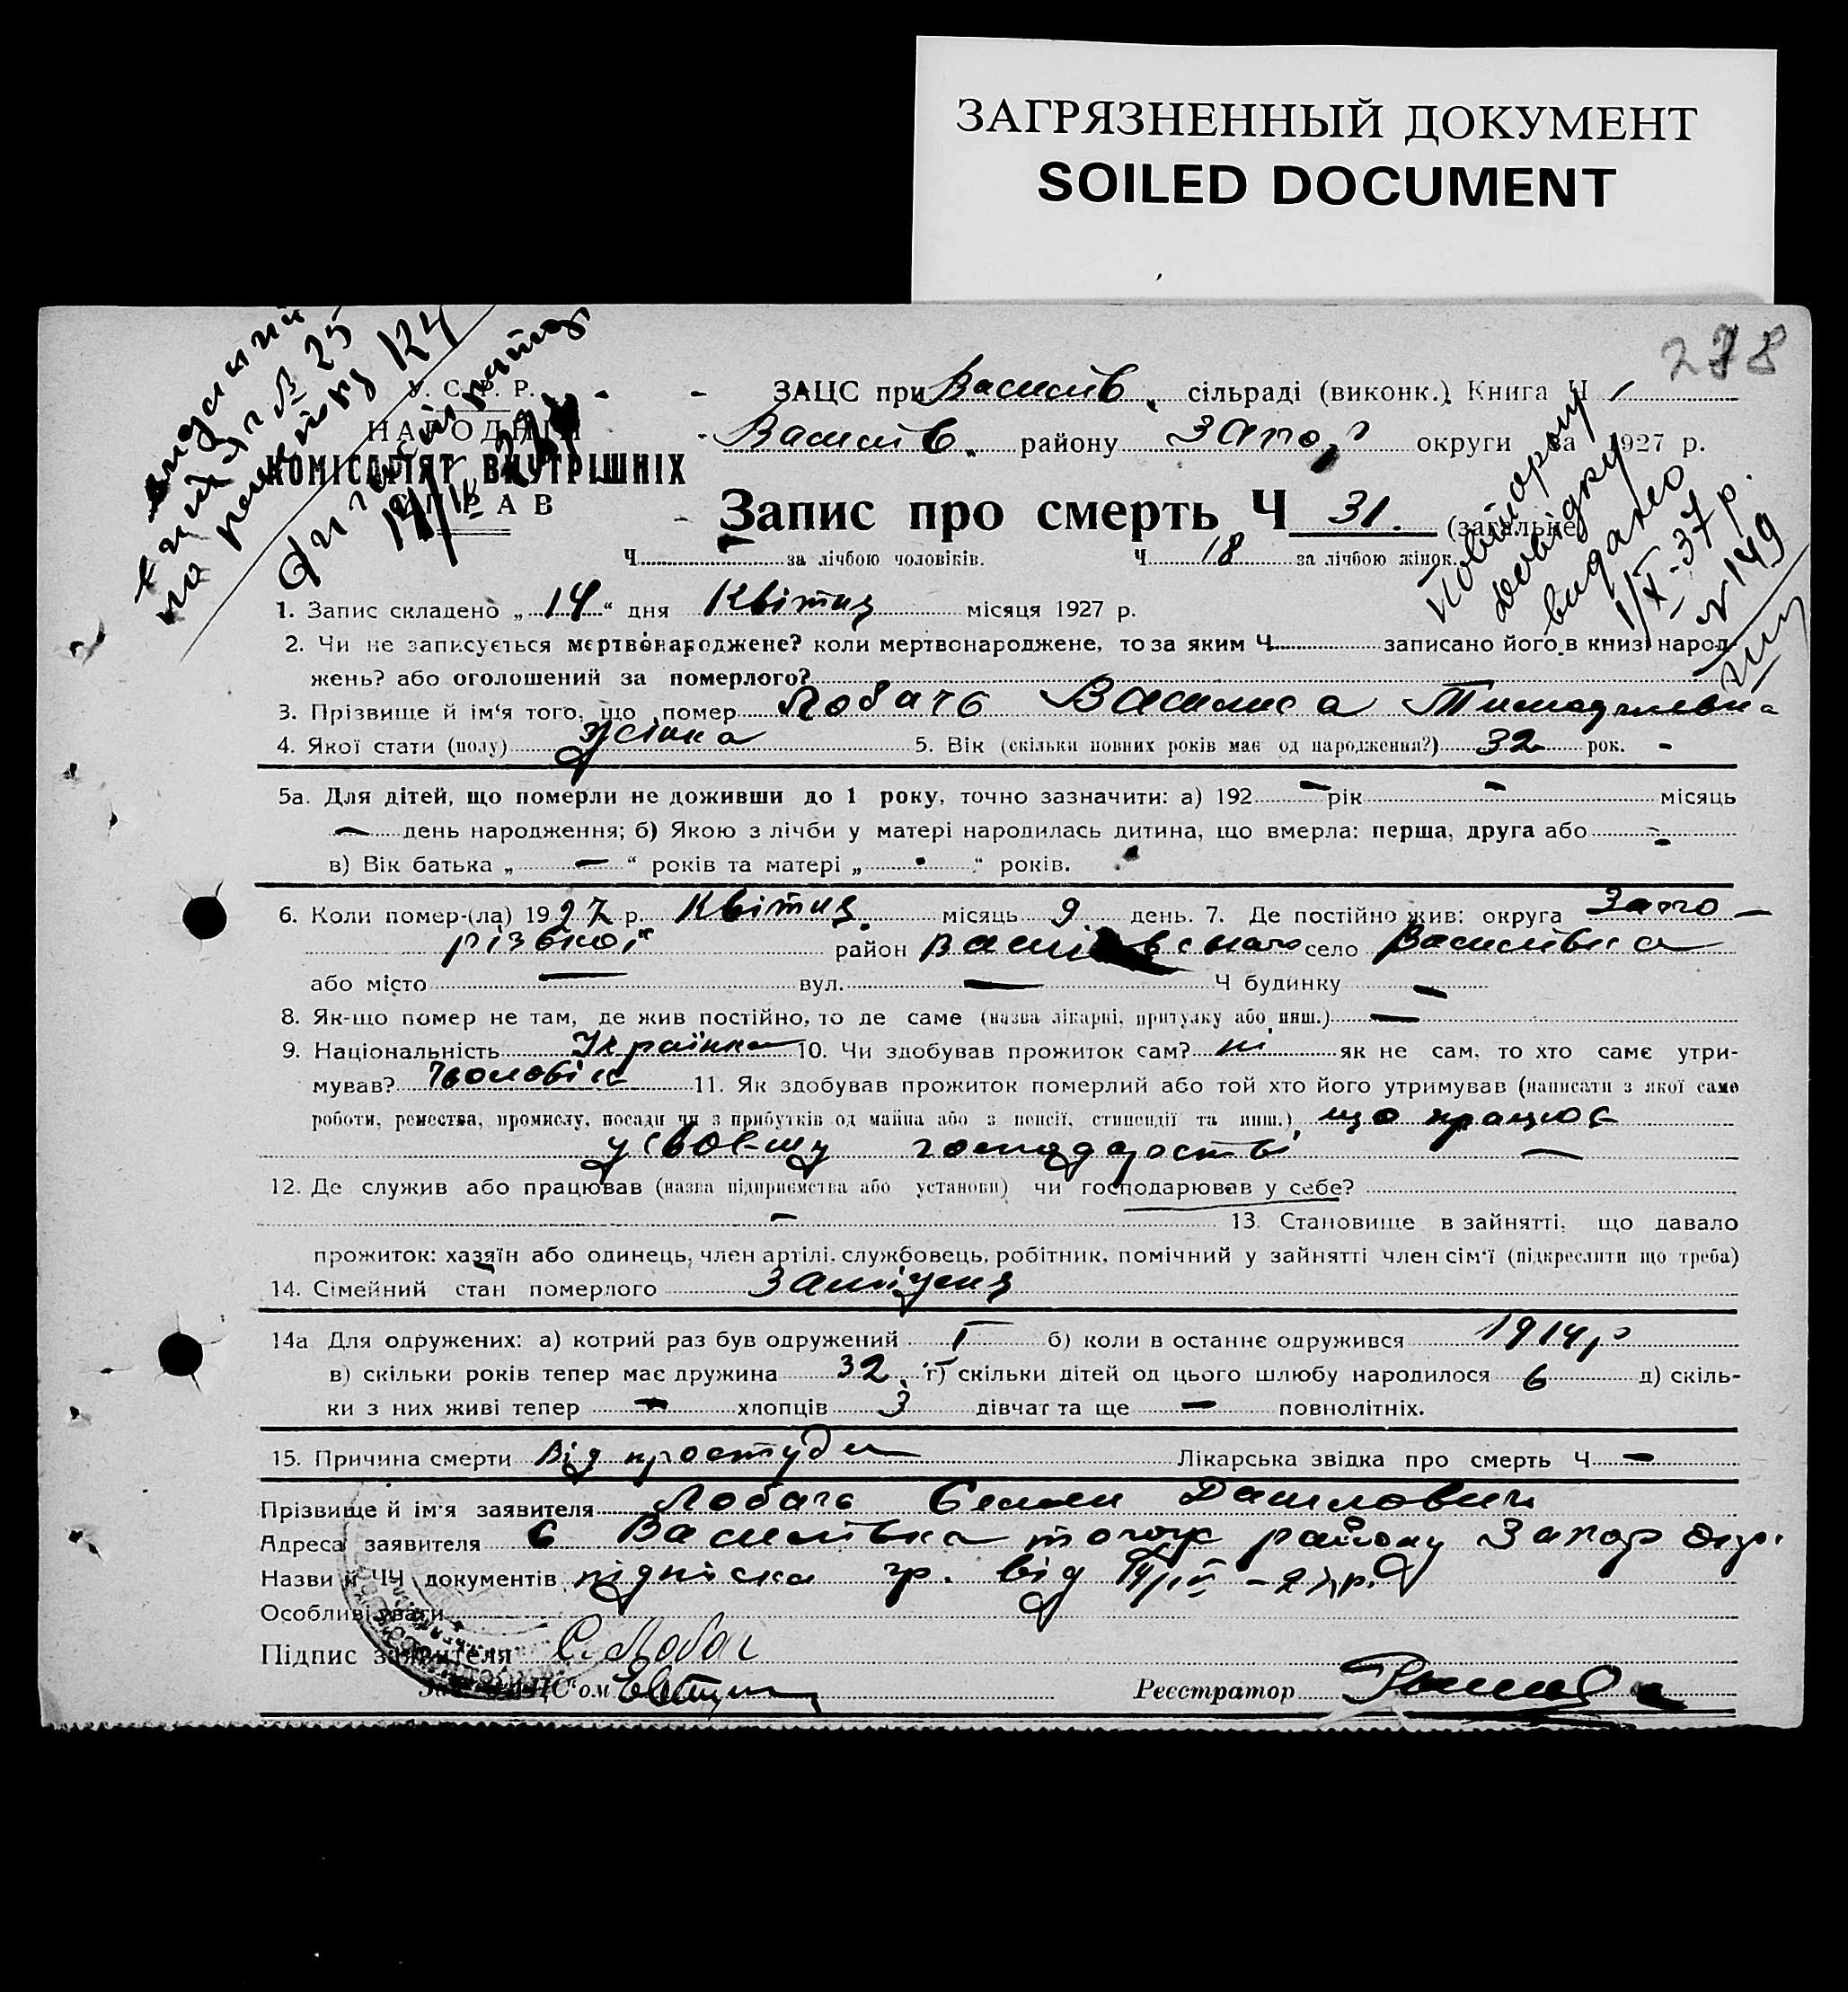 ЗАГРЯЗНЕННЫЙ ДОКУМЕНТ
SOILED DOCUMENT
278
У. С. Р. Р.
НАРОДНІЙ
КОМІСАРІЯТ ВНУТРІШНІХ
СПРАВ
14/IV 27
ЗАЦС при Василів. сільраді (виконк.) Книга Ч 1
Василів. району Запор округи за 1927 р.
Запис про смерть Ч 31. (загальне)
Ч за лічбою чоловіків. Ч 18 за лічбою жінок.
Повторну
довідку
видано
1/X-37 р.
№ 149
1. Запис складено „14“ дня Квітня місяця 1927 р.
2. Чи не записується мертвонароджене? коли мертвонароджене, то за яким Ч записано його в книзі народ-
жень? або оголошений за померлого?
3. Прізвище й ім‘я того, що помер Лобачь Василиса Тимофиевна
4. Якої стати (полу) Жінка 5. Вік (скільки повних років має од народження?) 32 рок. -
5а. Для дітей, що померли не доживши до 1 року, точно зазначити: а) 192 — рік — місяць
— день народження; б) Якою з лічби у матері народилась дитина, що вмерла: перша, друга або -
в) Вік батька „ — “ років та матері „ - “ років.
6. Коли помер-(ла) 1927 р. Квітня місяць 9 день. 7. Де постійно жив: округа Запо-
різької район Василівського село Василівка
або місто — вул. — Ч будинку —
8. Як-що помер не там, де жив постійно, то де саме (назва лікарні, притулку або инш.) —
9. Національність Українка 10. Чи здобував прожиток сам? ні як не сам, то хто саме утри-
мував? Чоловік 11. Як здобував прожиток померлий або той хто його утримував (написати з якої само
роботи, ремества, промислу, посади чи з прибутків од майна або з пенсії, стипендії та инш.) що працює
у своєму господарстві —
12. Де служив або працював (назва підприємства або установи) чи господарював у себе?
— 13. Становище в зайнятті, що давало
прожиток: хазяїн або одинець, член артілі, службовець, робітник, помічний у зайнятті член сім‘ї (підкреслити що треба)
14. Сімейний стан померлого Заміжня
14а Для одружених: а) котрий раз був одружений I б) коли в останнє одружився 1914 р
в) скільки років тепер має дружина 32 г) скільки дітей од цього шлюбу народилося 6 д) скіль-
ки з них живі тепер — хлопців 3 дівчат та ще — повнолітніх.
15. Причина смерти Від простуди Лікарська звідка про смерть Ч —
Прізвище й ім‘я заявителя Лобачь Семен Данилович
Адреса заявителя с Василівка того ж району Запор окр.
Назви й ЧЧ документів підпіска гр. від 14/IV - 27 р.
Особливі уваги
Підпис заявителя С. Лобач
Зав. ЗАЦС‘ом Реєстратор